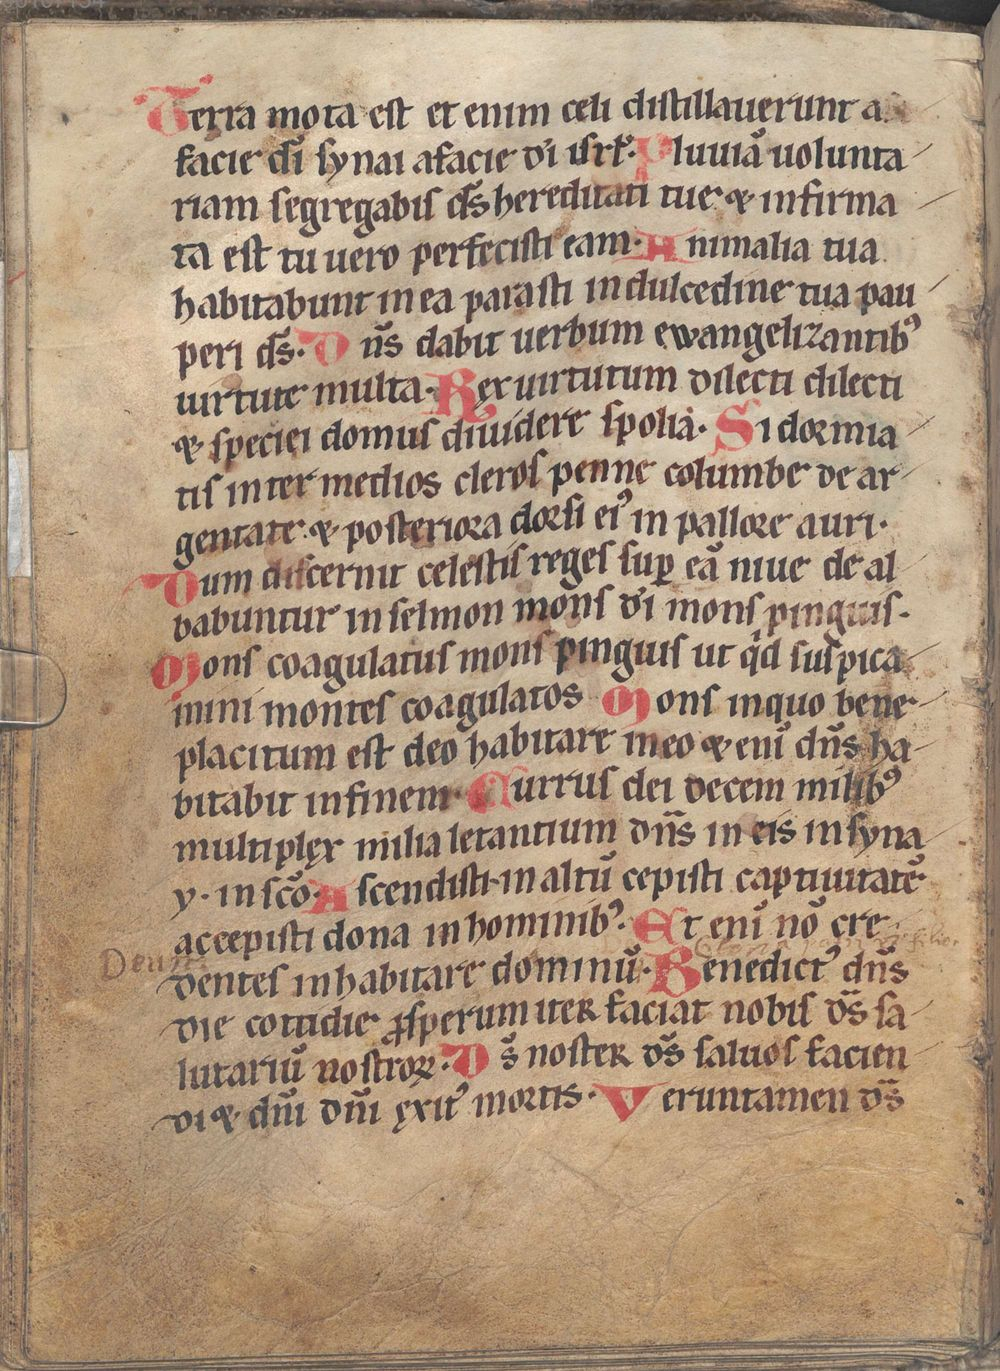 Terra mota est et enim celi distillauerunt a
facie dı̄ synai afacie dı̄ isrl̄. Pluuiā uolunta
riam segregabis ds̄ hereditati tue ⁊ infirma
ta est tu uero perfecisti eam. Animalia tua
habitabunt in ea parasti indulcedine tua pau
peri ds̄. Dn̄s dabit uerbum ewangelizantibꝰ
uirtute multa. Rex uirtutum dilecti dilecti
⁊ speciei domus diuidere spolia. Si dormia
tis inter medios cleros penne columbe de ar
gentate ⁊ posteriora dorsi eiꝰ in pallore auri.
Dum discernit celestis reges suꝑ eā niue de al
babuntur in selmon mons dı̄ mons pinguis.
Mons coagulatus mons pinguis ut qͥd suspica
mini montes coagulatos Mons inquo bene
placitum est deo habitare in eo ⁊ enī dn̄s ha
bitabit infinem. Currus dei decem milibꝰ
multiplex milia letantium dn̄s in eis in syna
y. in scō. Ascendisti in altū cepisti captiuitatē.
accepisti dona in hominibꝰ. Et enī nō cre
dentes inhabitare dominū. Benedictꝰ dn̄s
die cottidie ꝓsperum iter faciat nobis ds̄ sa
lutariū nostroꝝ. Ds̄ noster ds̄ saluos facien
di ⁊ dn̄i dn̄i exitꝰ mortis. Veruntamen ds̄